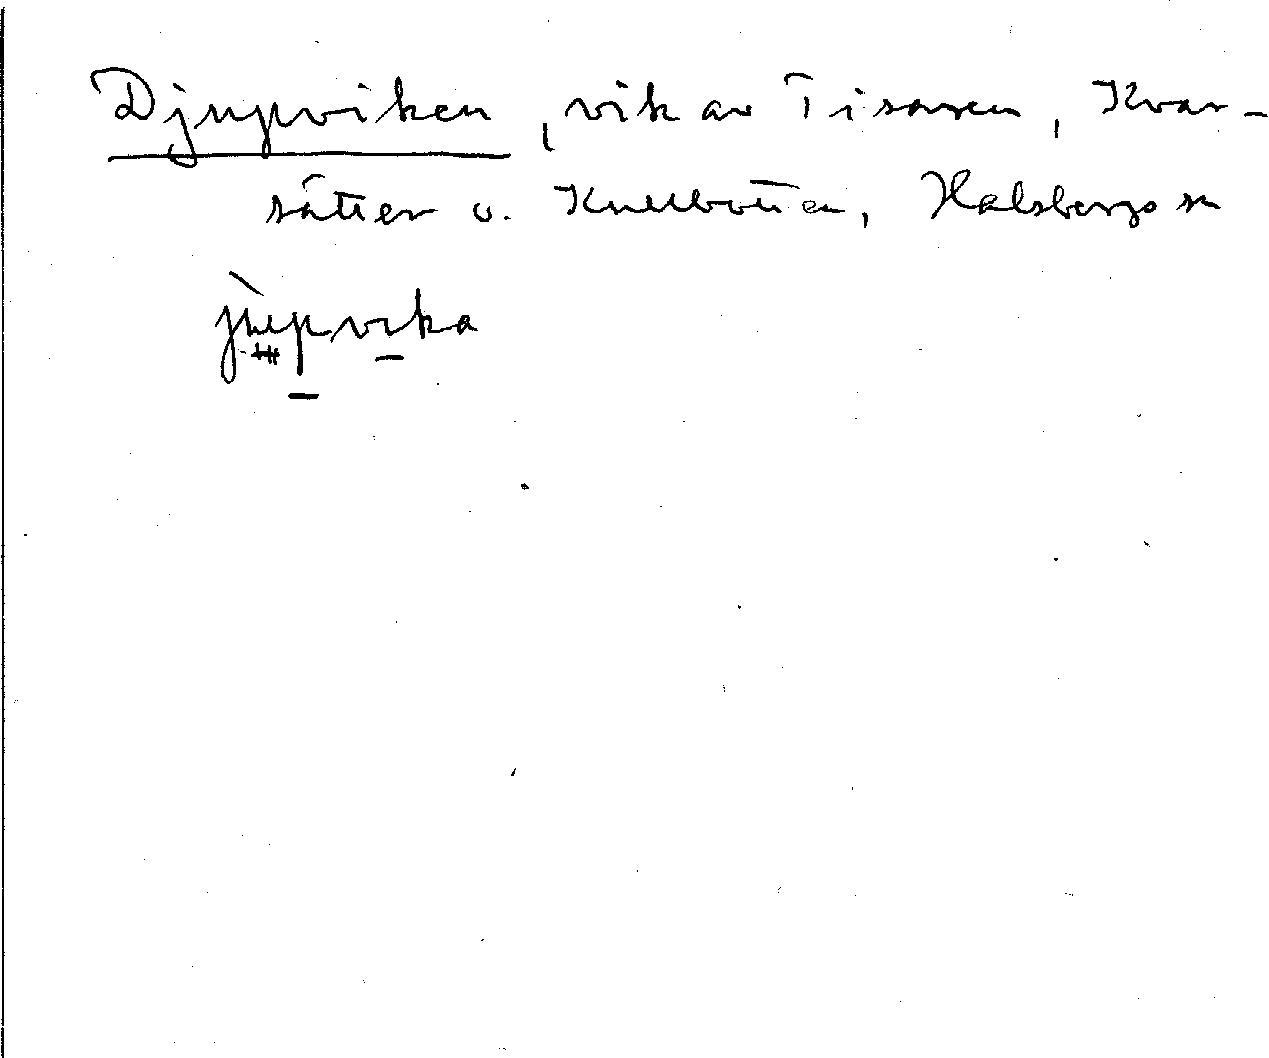 Djupviken, vik av Tisaren, Kvar-
sätter o. Knellbotten, Halsbergs sn
jùpvika